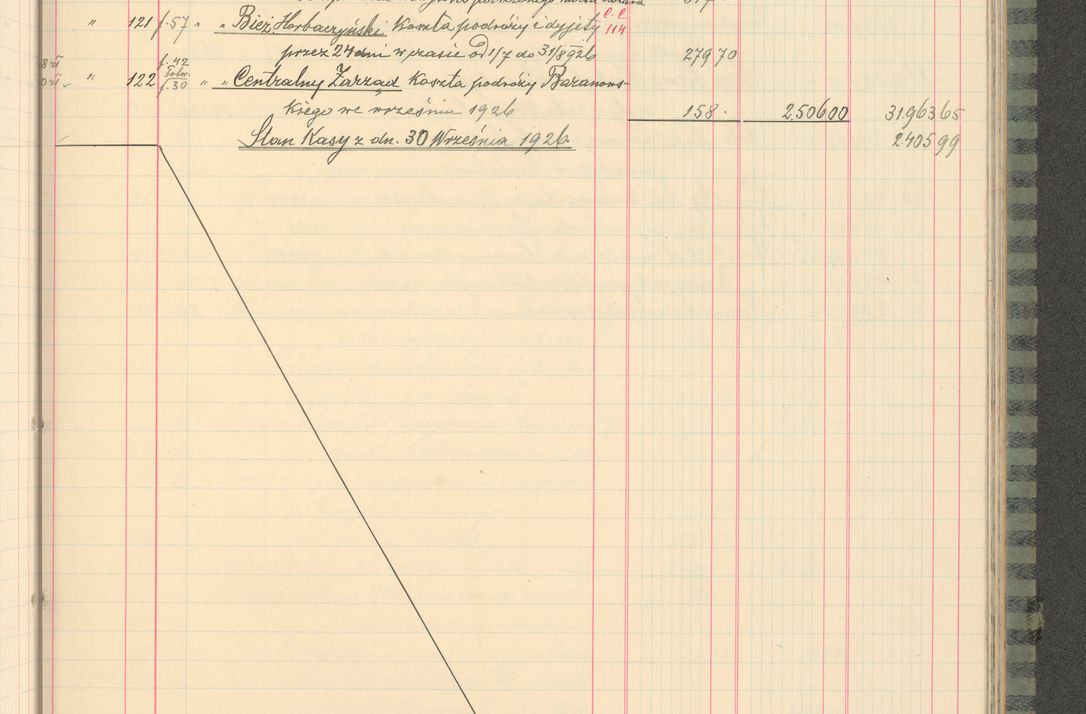 " 121 f. 57 " " Bież Horbaczyński Koszta podróży i dyjety 114
przez 24 dni w czasie od 1/7 do 31/8 926 279 70
f. 42
" 122 f. 30 " " Centralny Zarząd Koszta podróży Baranows-
kiego we wrześniu 1926 158 · 2.506 00 31.963 65
Stan Kasy z dn. 30 Września 1926 2.405 99